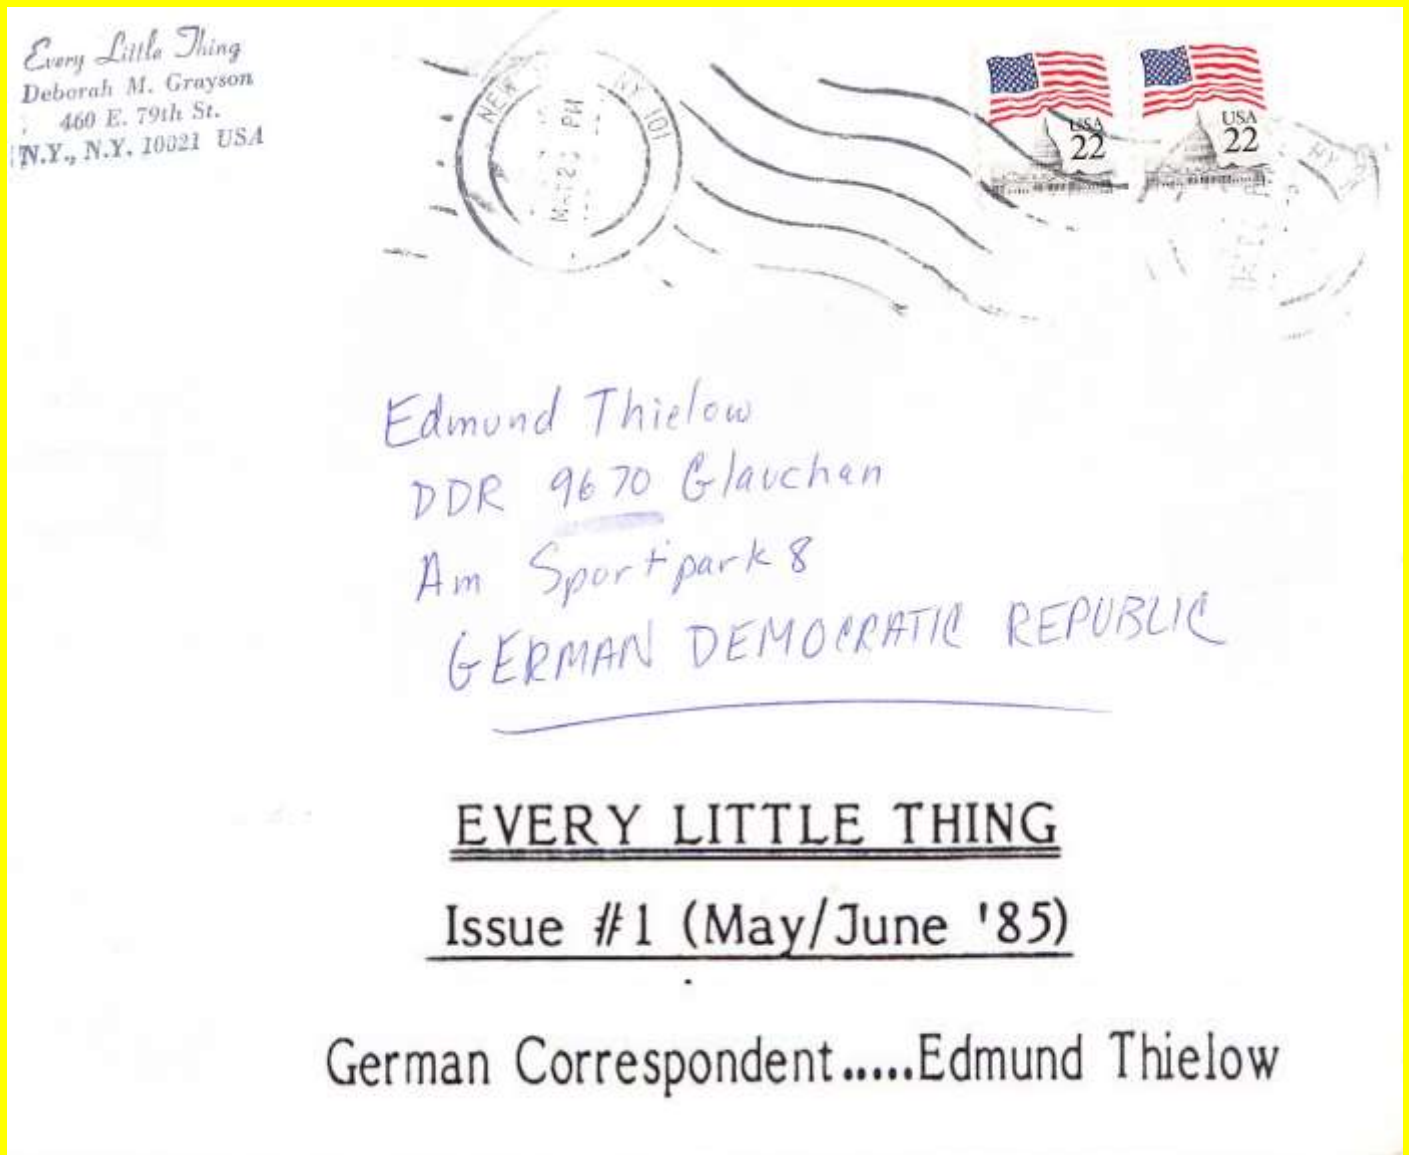 Every Little Thing
Deborah M. Grayson
460 E. 79th St.
N.Y., N.Y. 10021 USA
NEW NY 101
PM
MAY 23
USA
22
USA
22
NY
Edmund Thielow
DDR 9670 Glauchan
Am Sportpark 8
GERMAN DEMOCRATIC REPUBLIC
EVERY LITTLE THING
Issue #1 (May/June '85)
German Correspondent.....Edmund Thielow